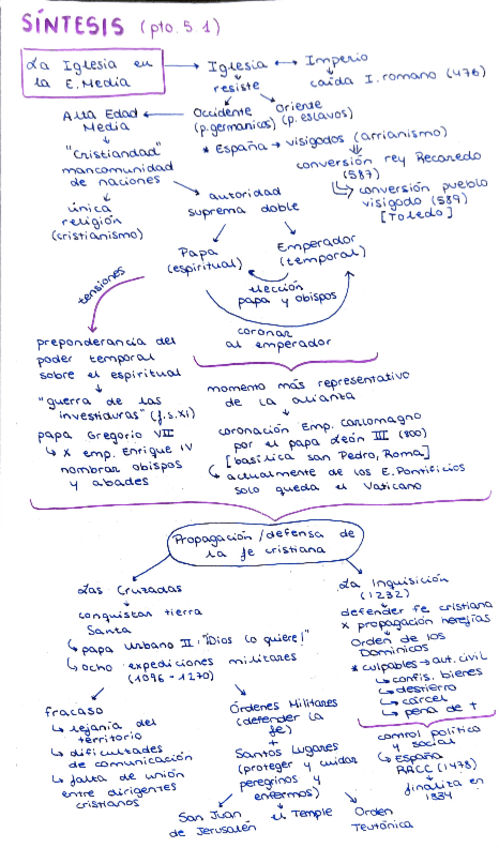 SÍNTESIS (pto. 5.1)
La Iglesia en
la E. Media
Iglesia ↔ Imperio
resiste
caída I. romano (476)
Occidente
(p. germanicos)
Oriente
(p. eslavos)
Alta Edad
Media
* España → visigodos (arrianismo)
conversión rey Recaredo
(587)
↳ conversión pueblo
visigodo (589)
[Toledo]
"Cristiandad"
mancomunidad
de naciones
única
religión
(cristianismo)
autoridad
suprema doble
Papa
(espiritual)
Emperador
(temporal)
elección
papa y obispos
coronar
al emperador
tensiones
preponderancia del
poder temporal
sobre el espiritual
"guerra de las
investiduras" (f.s.XI)
papa Gregorio VII
↳ x emp. Enrique IV
nombrar obispos
y abades
momento más representativo
de la alianza
coronación Emp. Carlomagno
por el papa León III (800)
[basílica san Pedro, Roma]
↳ actualmente de los E. Pontificios
solo queda el Vaticano
Propagación/defensa de
la fe cristiana
Las Cruzadas
conquistar tierra
Santa
↳ papa Urbano II: "¡Dios lo quiere!"
↳ ocho expediciones militares
(1096-1270)
fracaso
↳ lejanía del
territorio
↳ dificultades
de comunicación
↳ falta de unión
entre dirigentes
cristianos
Órdenes Militares
(defender la
fe)
+
Santos Lugares
(proteger y cuidar
peregrinos y
enfermos)
San Juan
de Jerusalén
el Temple
Orden
Teutónica
La Inquisición
(1232)
defender fe cristiana
x propagación herejías
Orden de los
Dominicos
* culpables → aut. civil
↳ confis. bienes
↳ destierro
↳ cárcel
↳ pena de +
control político
y social
↳ España
RRCC (1478)
finaliza en
1834